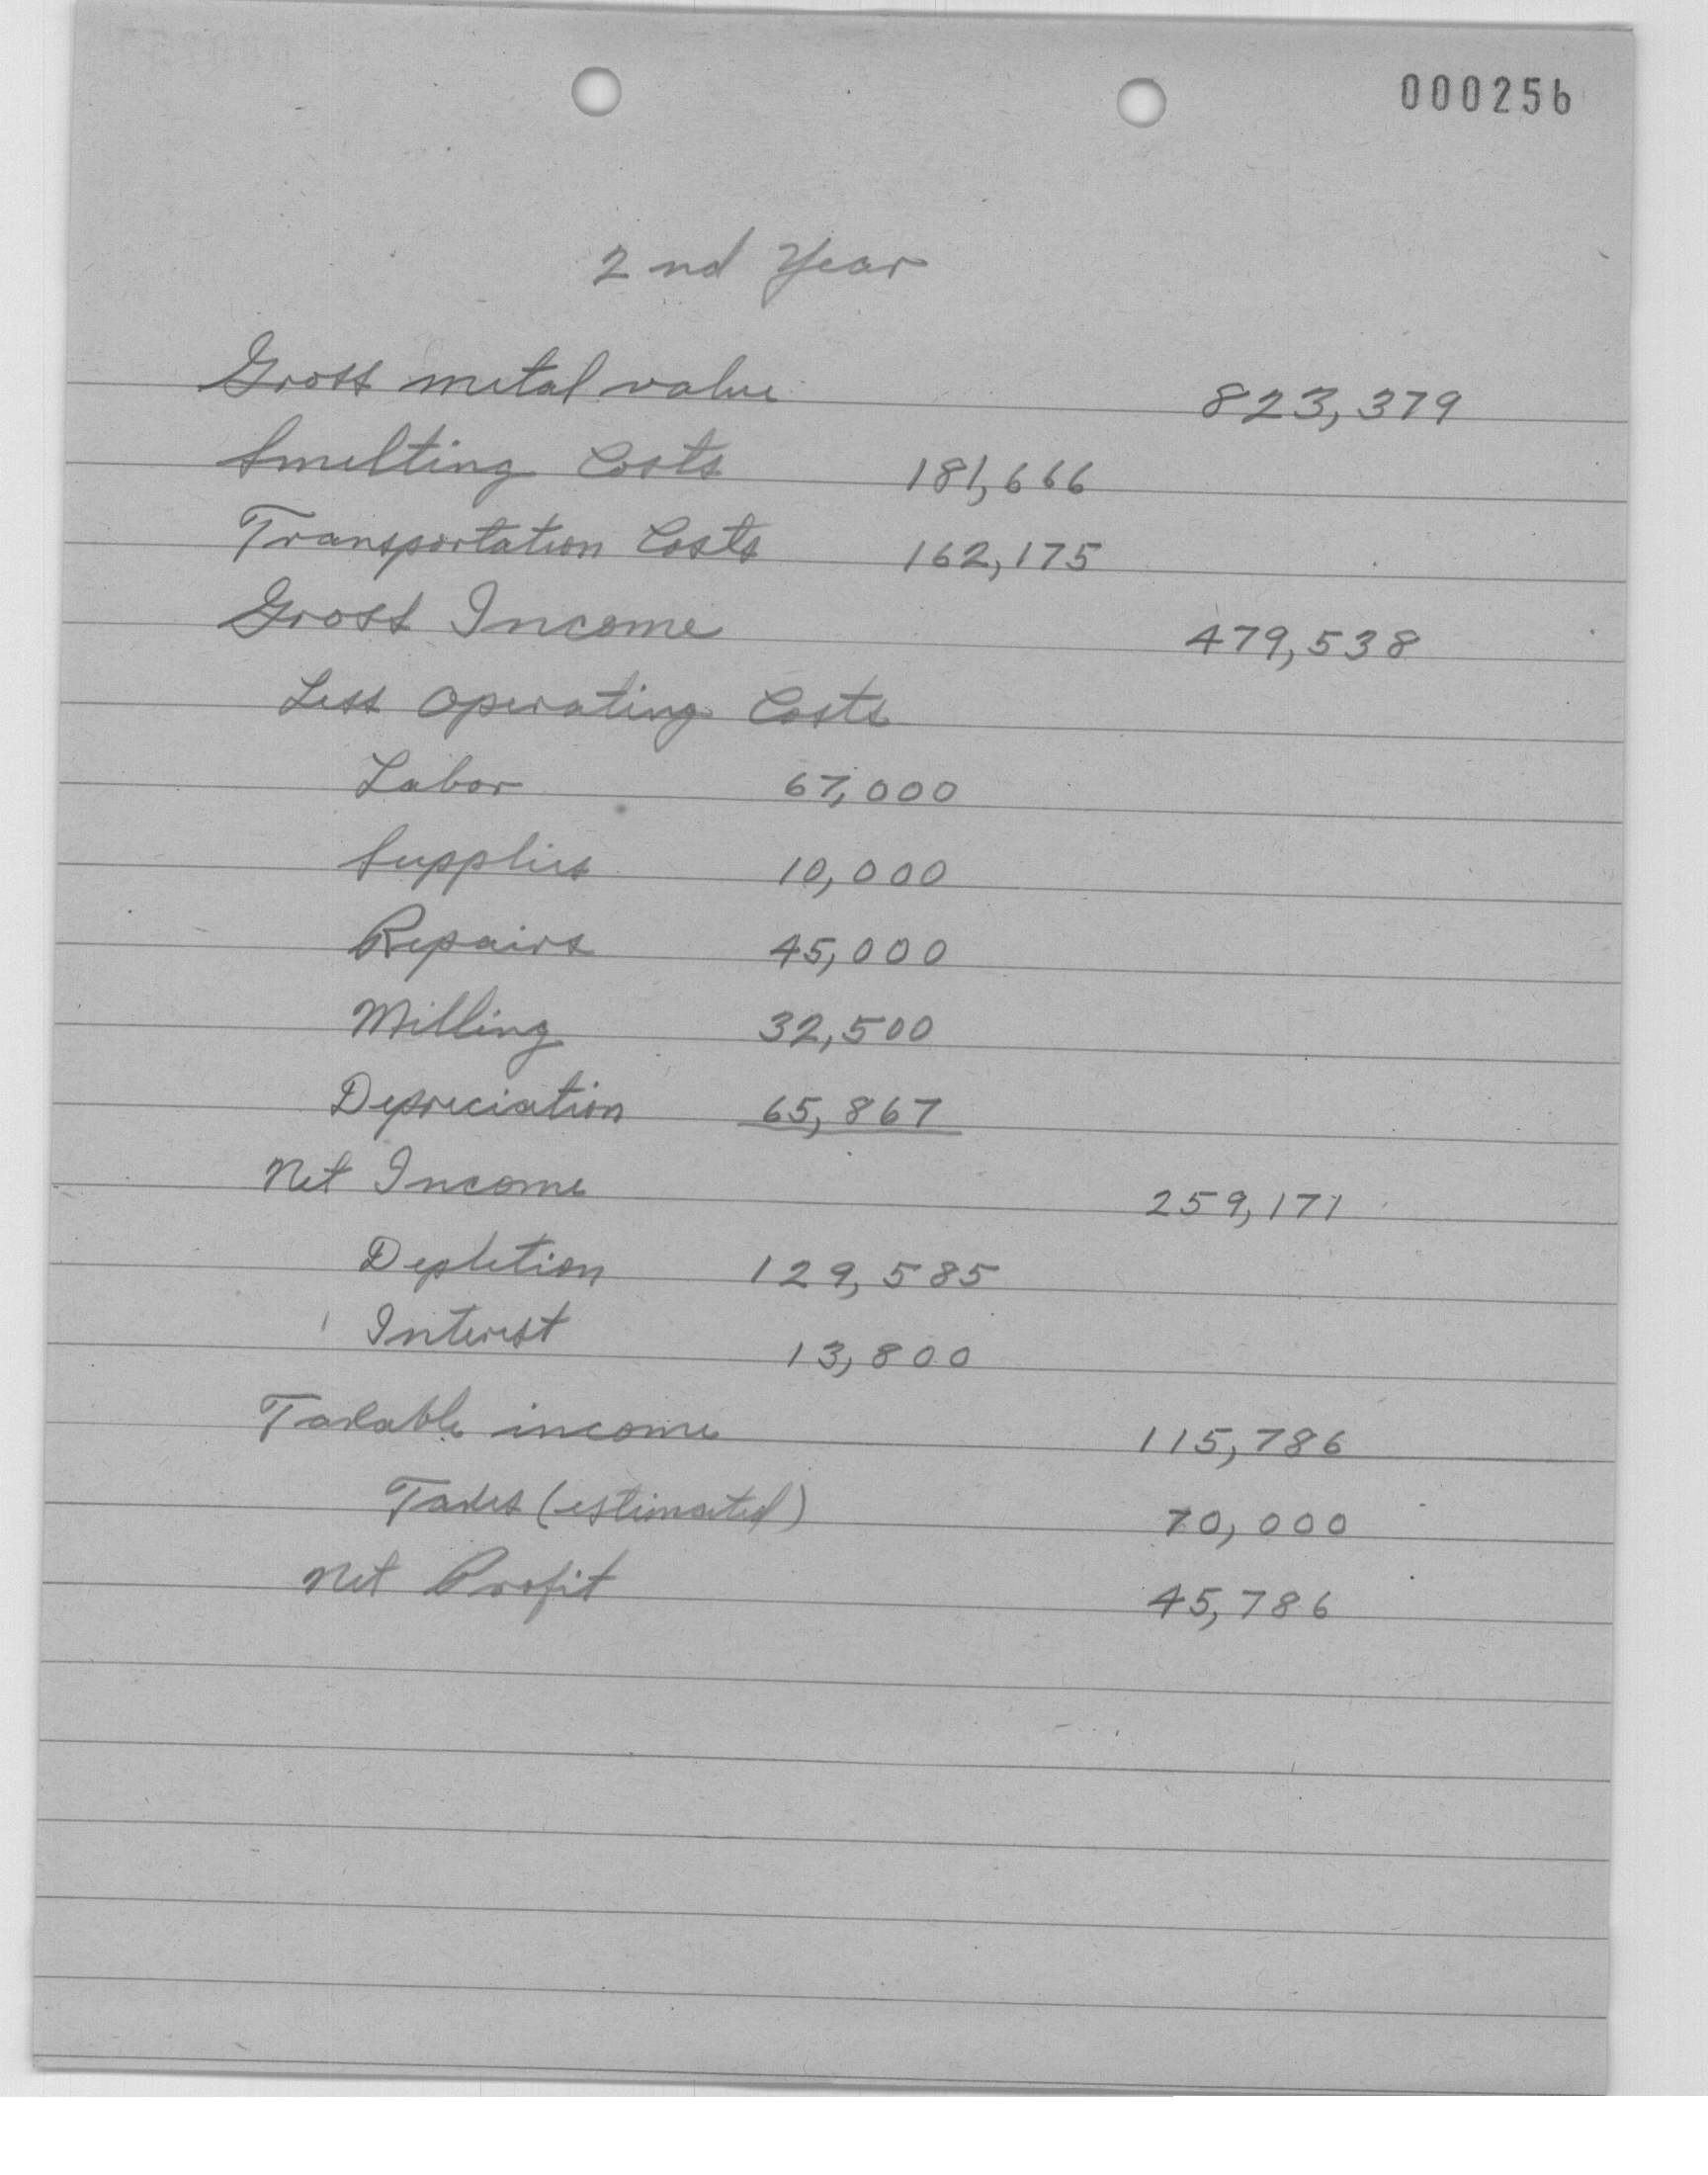 000256
2nd Year
Gross metal value 823,379
Smelting Costs 181,666
Transportation Costs 162,175
Gross Income 479,538
Less Operating Costs
Labor 67,000
Supplies 10,000
Repairs 45,000
Milling 32,500
Depreciation 65,867
Net Income 259,171
Depletion 129,585
Interest 13,800
Taxable income 115,786
Taxes (estimated) 70,000
Net Profit 45,786